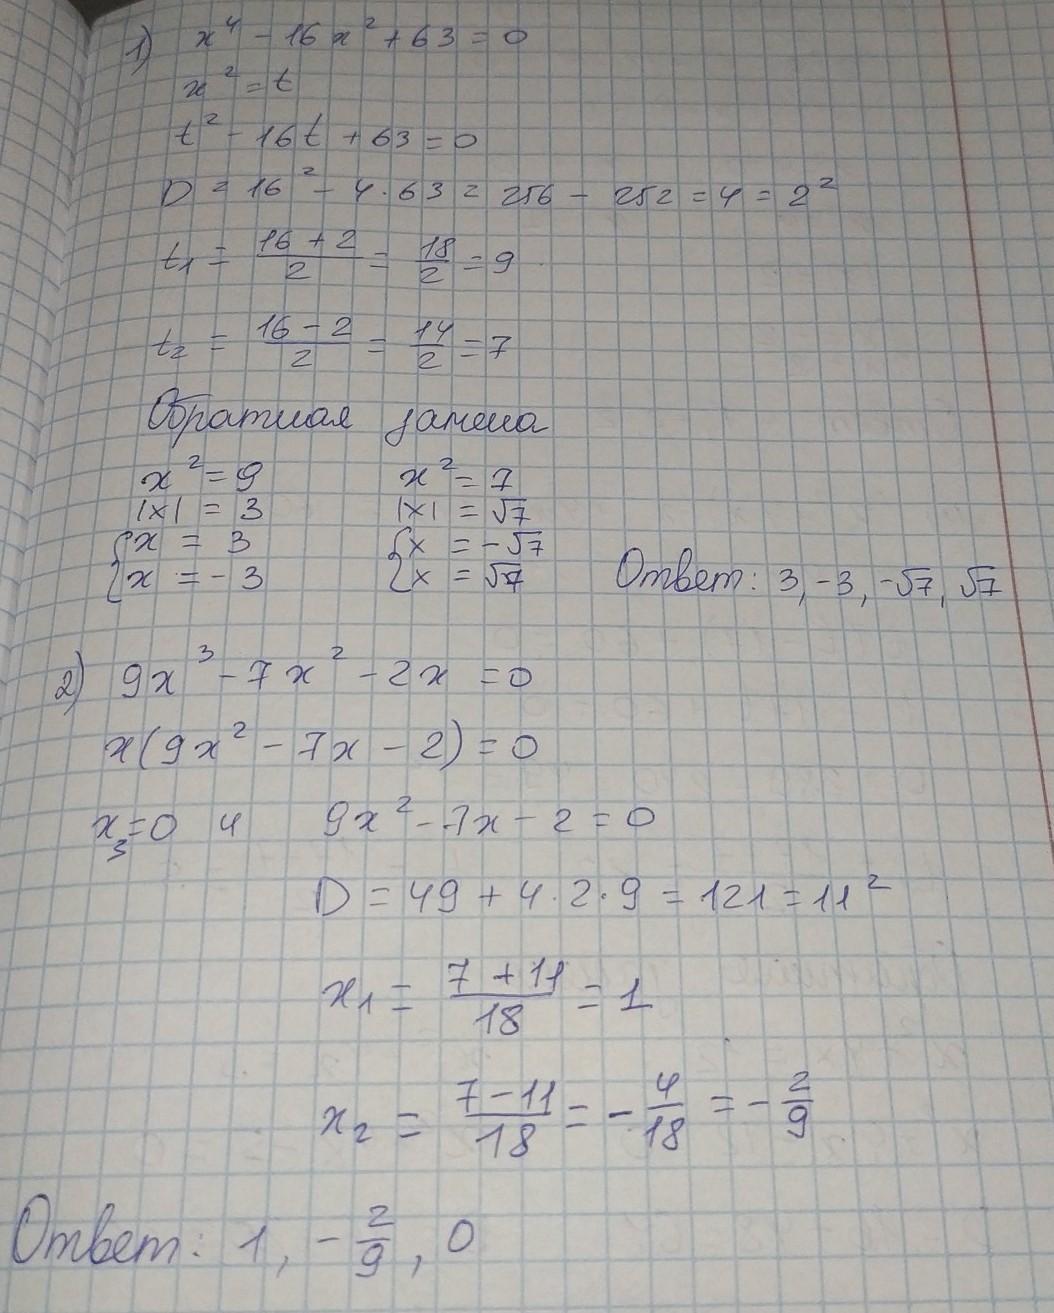 1) x⁴ - 16x² + 63 = 0
x² = t
t² - 16t + 63 = 0
D = 16² - 4·63 = 256 - 252 = 4 = 2²
t₁ = (16 + 2)/2 = 18/2 = 9
t₂ = (16 - 2)/2 = 14/2 = 7
Обратная замена
x² = 9 x² = 7
|x| = 3 |x| = √7
{x = 3 {x = -√7
{x = -3 {x = √7 Ответ: 3, -3, -√7, √7
2) 9x³ - 7x² - 2x = 0
x(9x² - 7x - 2) = 0
x₃ = 0 и 9x² - 7x - 2 = 0
D = 49 + 4·2·9 = 121 = 11²
x₁ = (7 + 11)/18 = 1
x₂ = (7 - 11)/18 = -4/18 = -2/9
Ответ: 1, -2/9, 0